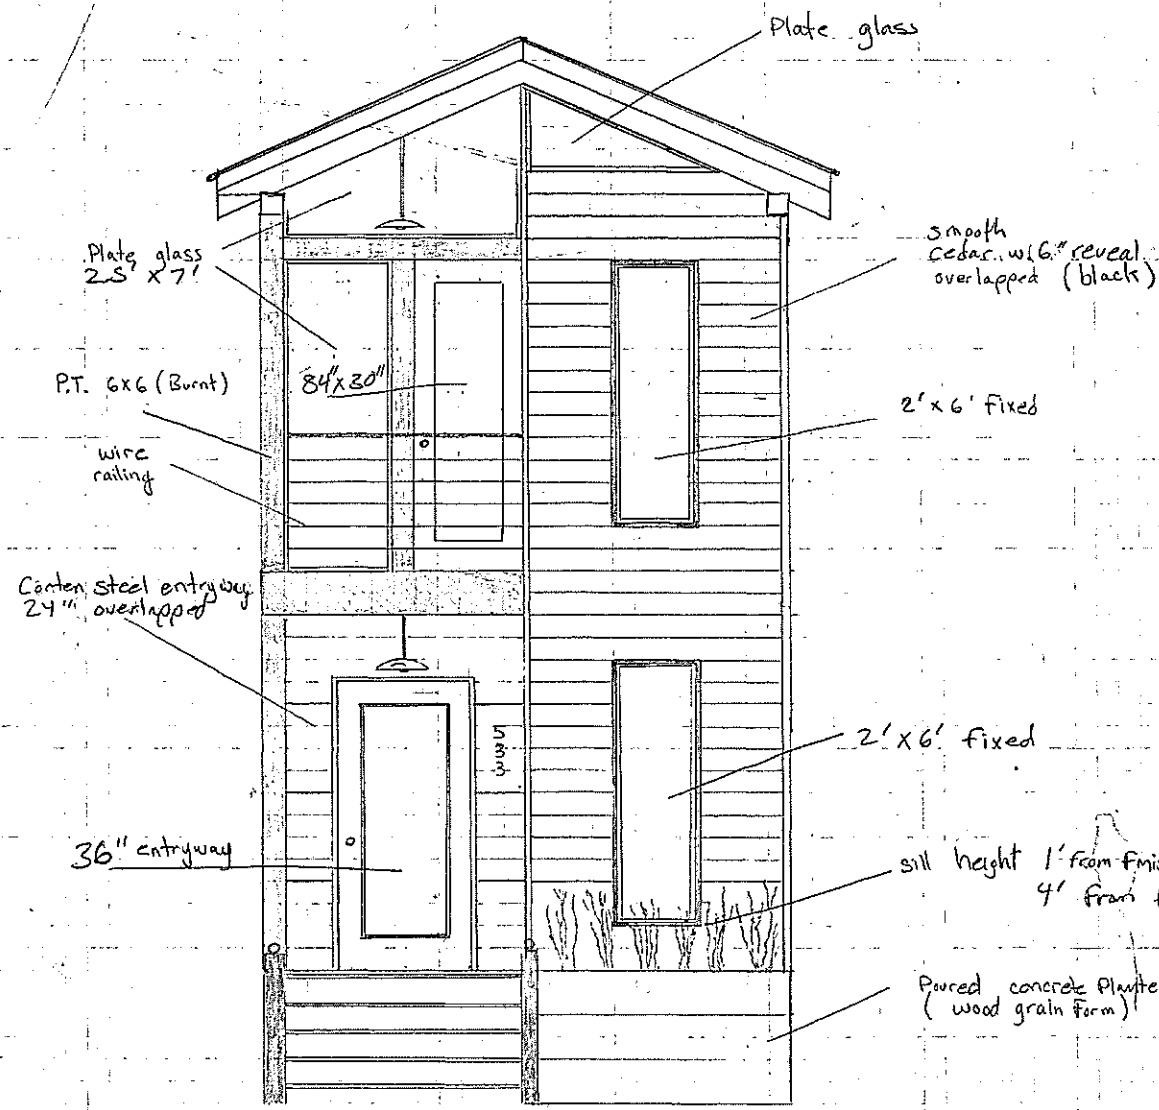 Plate glass
Plate glass
2.5' x 7'
smooth
cedar w/ 6" reveal
overlapped (black)
P.T. 6x6 (Burnt)
84"x30"
2' x 6' fixed
wire
railing
Corten steel entryway
24" overlapped
5
3
3
2' x 6' fixed
36" entryway
sill height 1' from
4' from
Poured concrete
(wood grain form)